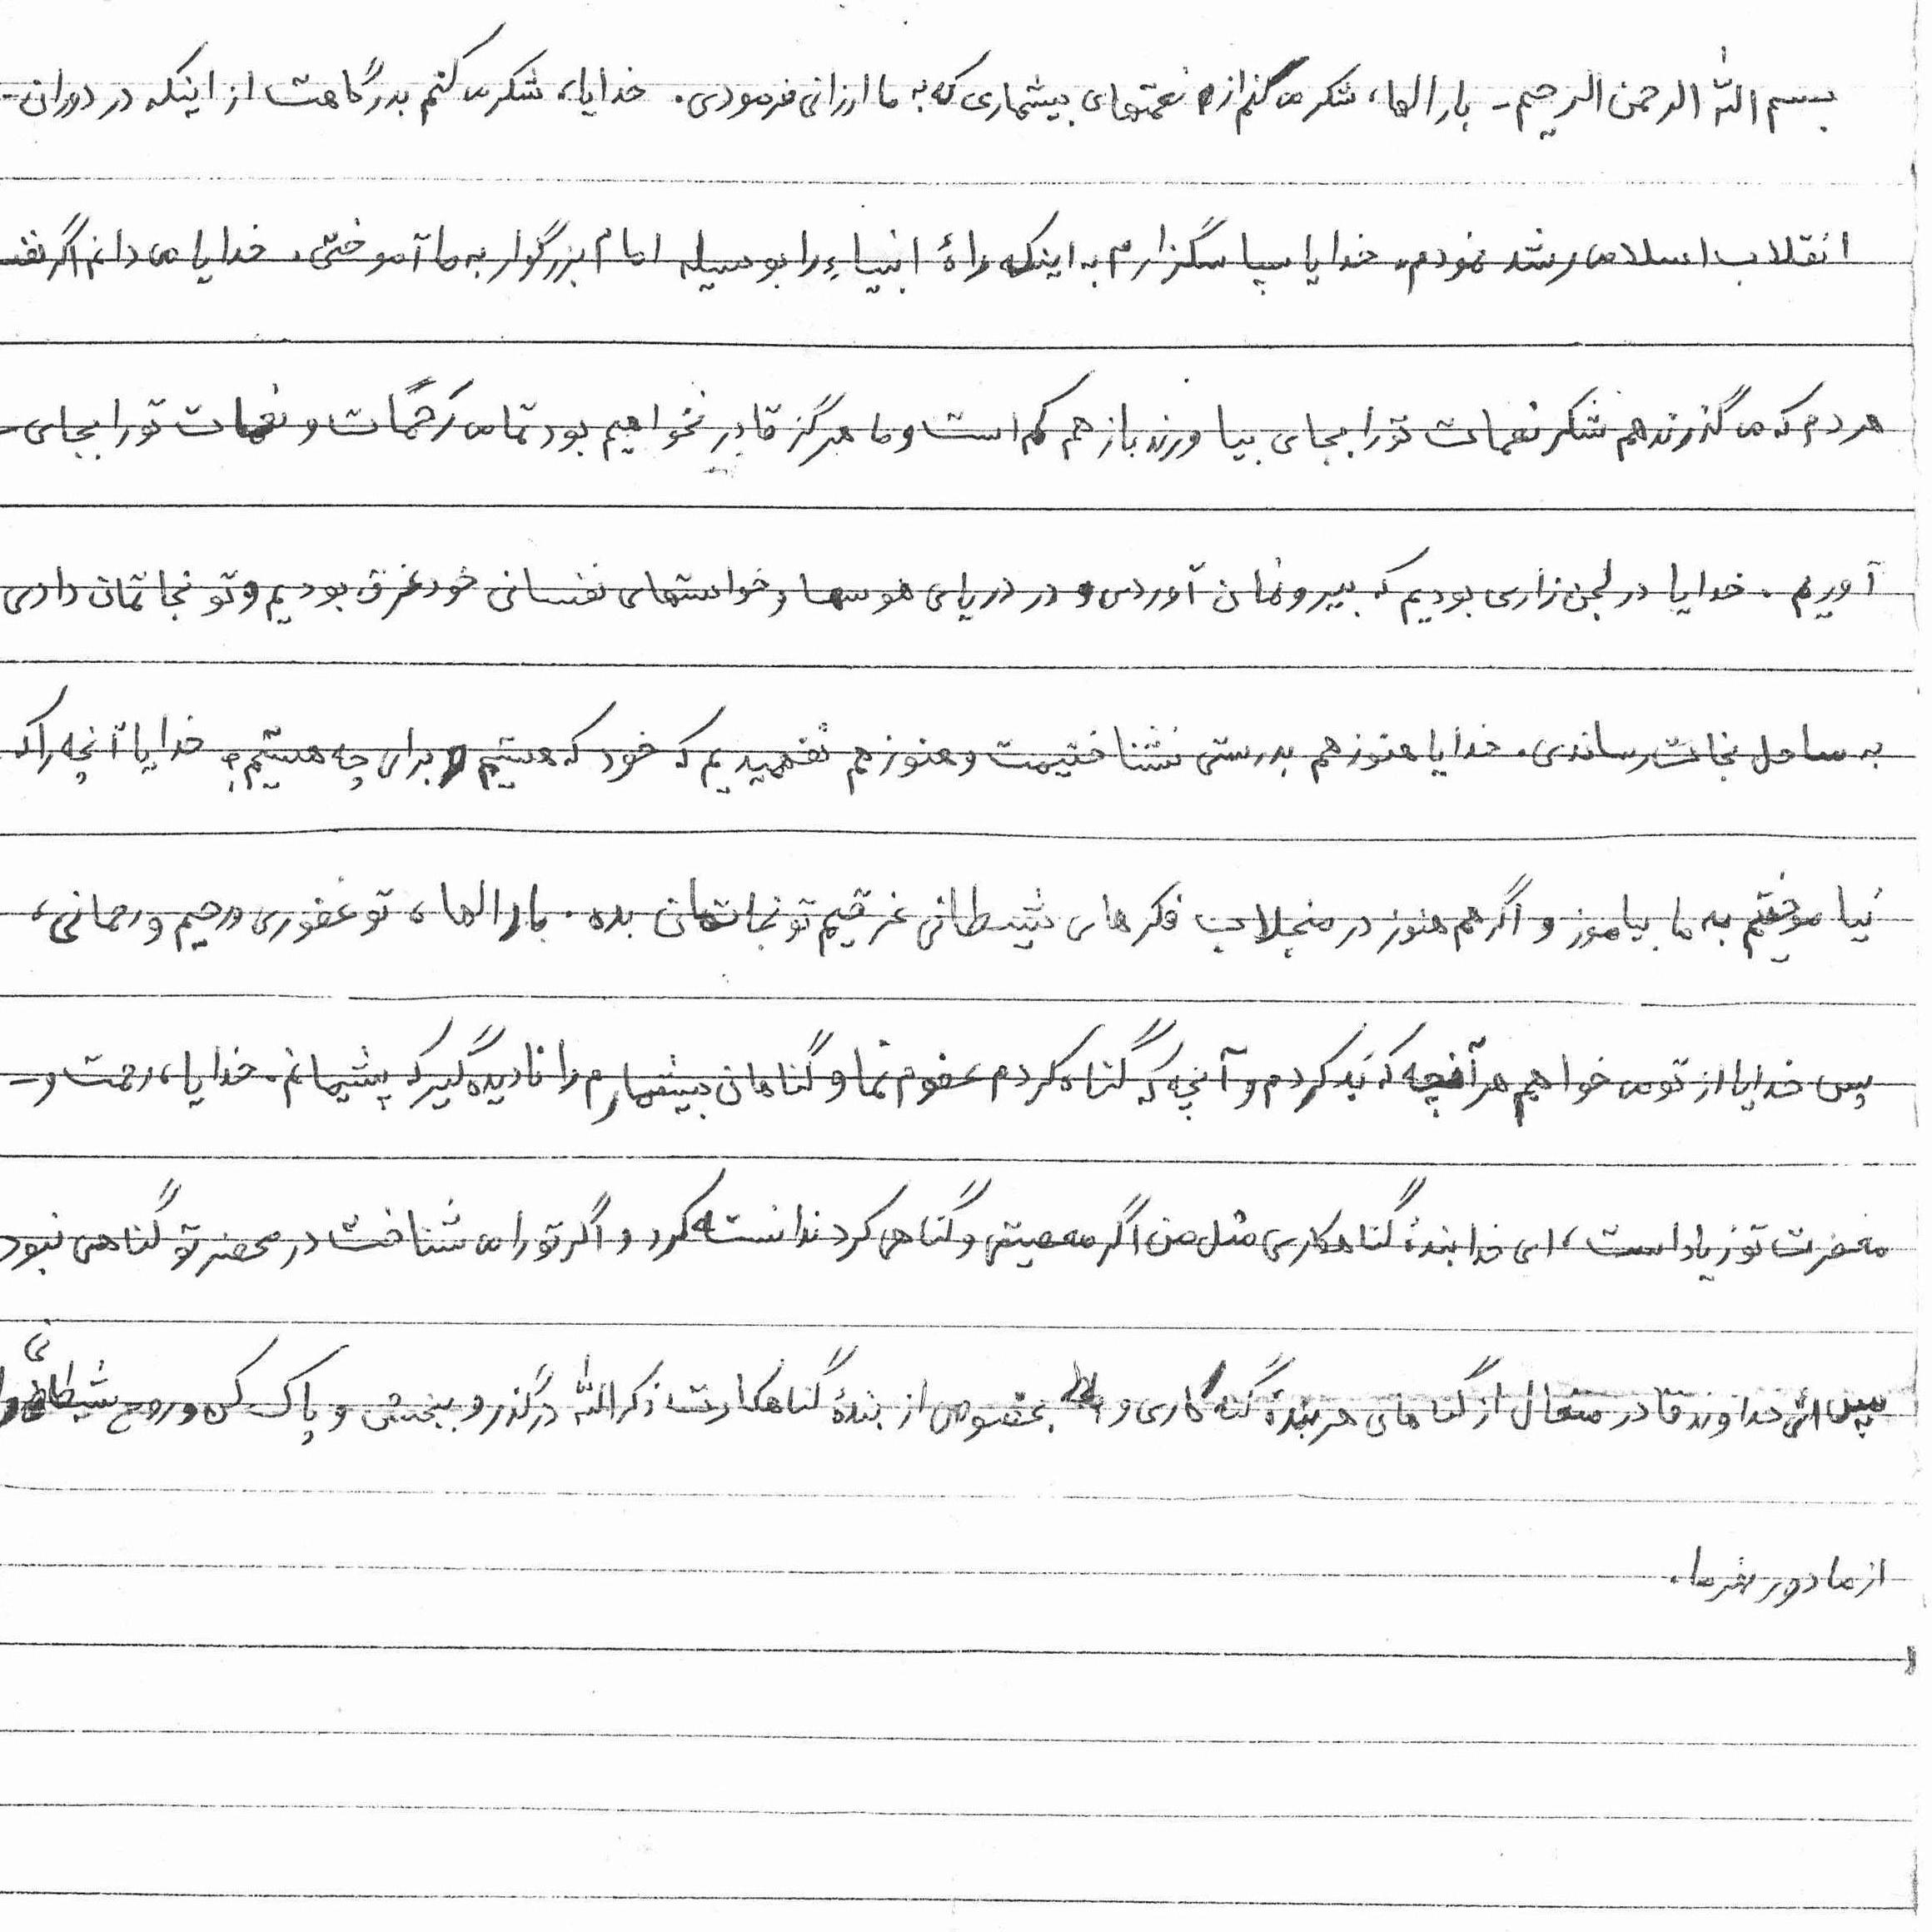 بسم الله الرحمن الرحیم - بارالها، شکر می کنم از نعمتهای بیشماری که به ما ارزانی فرمودی. خدایا، شکر می کنم بدرگاهت از اینکه در دوران-
انقلاب اسلامی رشد نمودم. خدایا سپاسگزارم به اینکه راهٔ انبیاء را بوسیله امام بزرگوار به ما آموختی. خدایا می دانم اگر
هر دم که می گذرد هم شکر نعمات تو را بجای بیاورند باز هم کم است و ما هرگز قادر نخواهیم بود تمامی رحمات و نعمات تو را بجای-
آوریم. خدایا در لجن زاری بودیم که بیرونمان آوردی و در دریای هوسها و خواستهای نفسانی خود غرق بودیم و تو نجاتمان دادی
به ساحل نجات رساندی. خدایا هنوز هم بدرستی نشناختیمت و هنوز هم نفهمیدیم که خود که هستیم و برای چه هستیم؟ خدایا آنچه را که
نیاموختیم به ما بیاموز و اگر هم هنوز در منجلاب فکرهای شیطانی غرقیم تو نجاتمان بده. بارالها، تو غفوری و رحیم و رحمانی،
پس خدایا از تو می خواهم هر آنچه که بد کردم و آنچه که گناه کردم عفوم نما و گناهان بیشمارم را نادیده گیر که پشیمانم. خدایا، رحمت و-
مغفرت تو زیاد است، ای خدا بندهٔ گناهکاری مثل من اگر معصیتی و گناهی کرد ندانسته کرد و اگر تو را می شناخت در محضر تو گناهی نبود
پس ای خداوند قادر متعال از گناهای هر بندهٔ گنه کاری و بخصوص از بندهٔ گناهکارت ذکرالله درگذر و ببخش و پاک کن و روح شیطانی را
از ما دور بفرما.